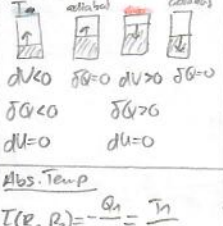 adiabat
dV<0 δQ=0 dV>0 δQ=0
δQ<0 δQ>0
dU=0 dU=0
Abs. Temp